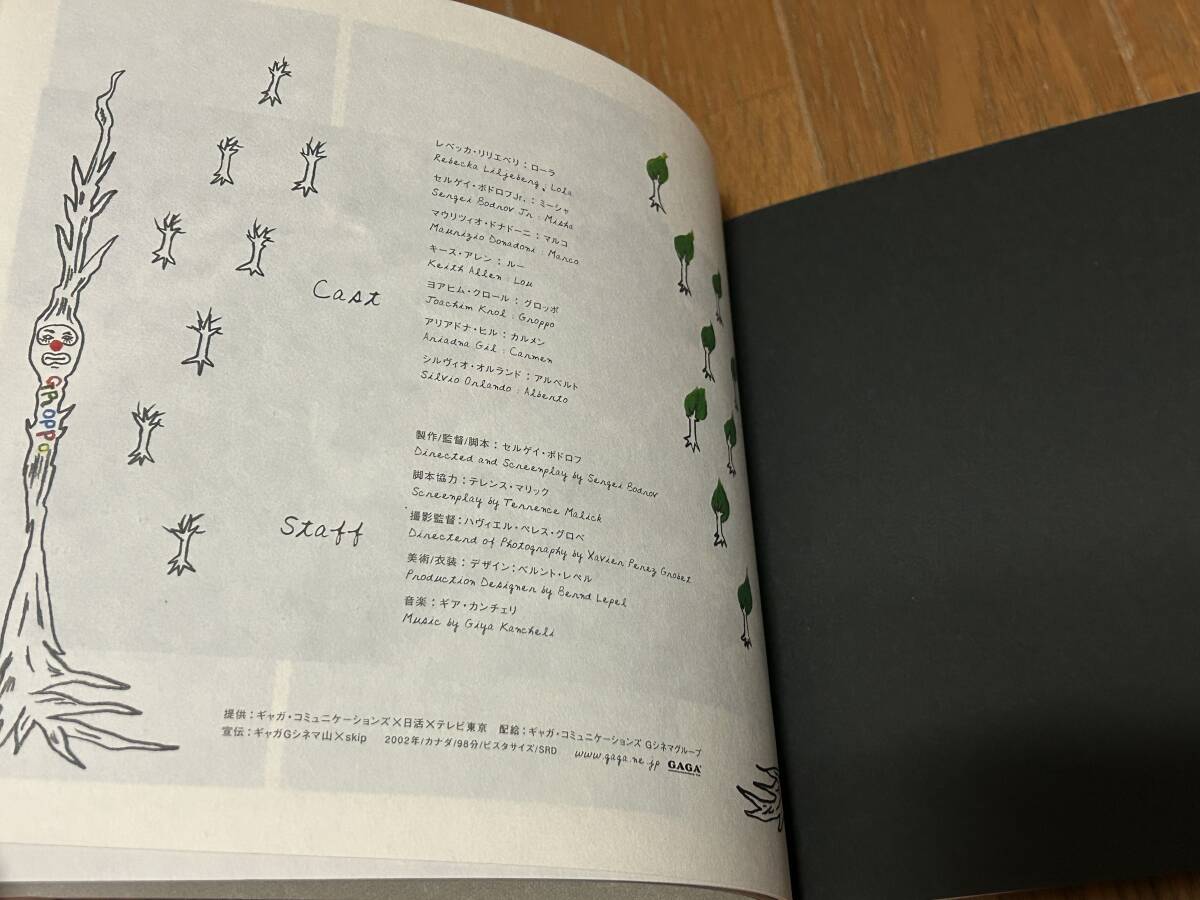 レベッカ・リリエベリ：ローラ
Rebecka Liljeberg : Lola
セルゲイ・ボドロフJr.：ミーシャ
Sergei Bodrov Jr : Misha
マウリツィオ・ドナドーニ：マルコ
Maurizio Donadoni : Marco
キース・アレン：ルー
Keith Allen : Lou
ヨアヒム・クロール：グロッポ
Joachim Krol : Groppo
アリアドナ・ヒル：カルメン
Ariadna Gil : Carmen
シルヴィオ・オルランド：アルベルト
Silvio Orlando : Alberto
Cast
Groppo
製作/監督/脚本：セルゲイ・ボドロフ
Directed and Screenplay by Sergei Bodrov
脚本協力：テレンス・マリック
Screenplay by Terrence Malick
撮影監督：ハヴィエル・ペレス・グロベ
Directerd of Photography by Xavier Perez Grobet
美術/衣装：デザイン：ベルント・レペル
Production Designer by Bernd Lepel
音楽：ギア・カンチェリ
Music by Giya Kancheli
Staff
提供：ギャガ・コミュニケーションズ×日活×テレビ東京 配給：ギャガ・コミュニケーションズ Gシネマグループ
宣伝：ギャガGシネマ山×skip 2002年/カナダ/98分/ビスタサイズ/SRD www.gaga.ne.jp GAGA